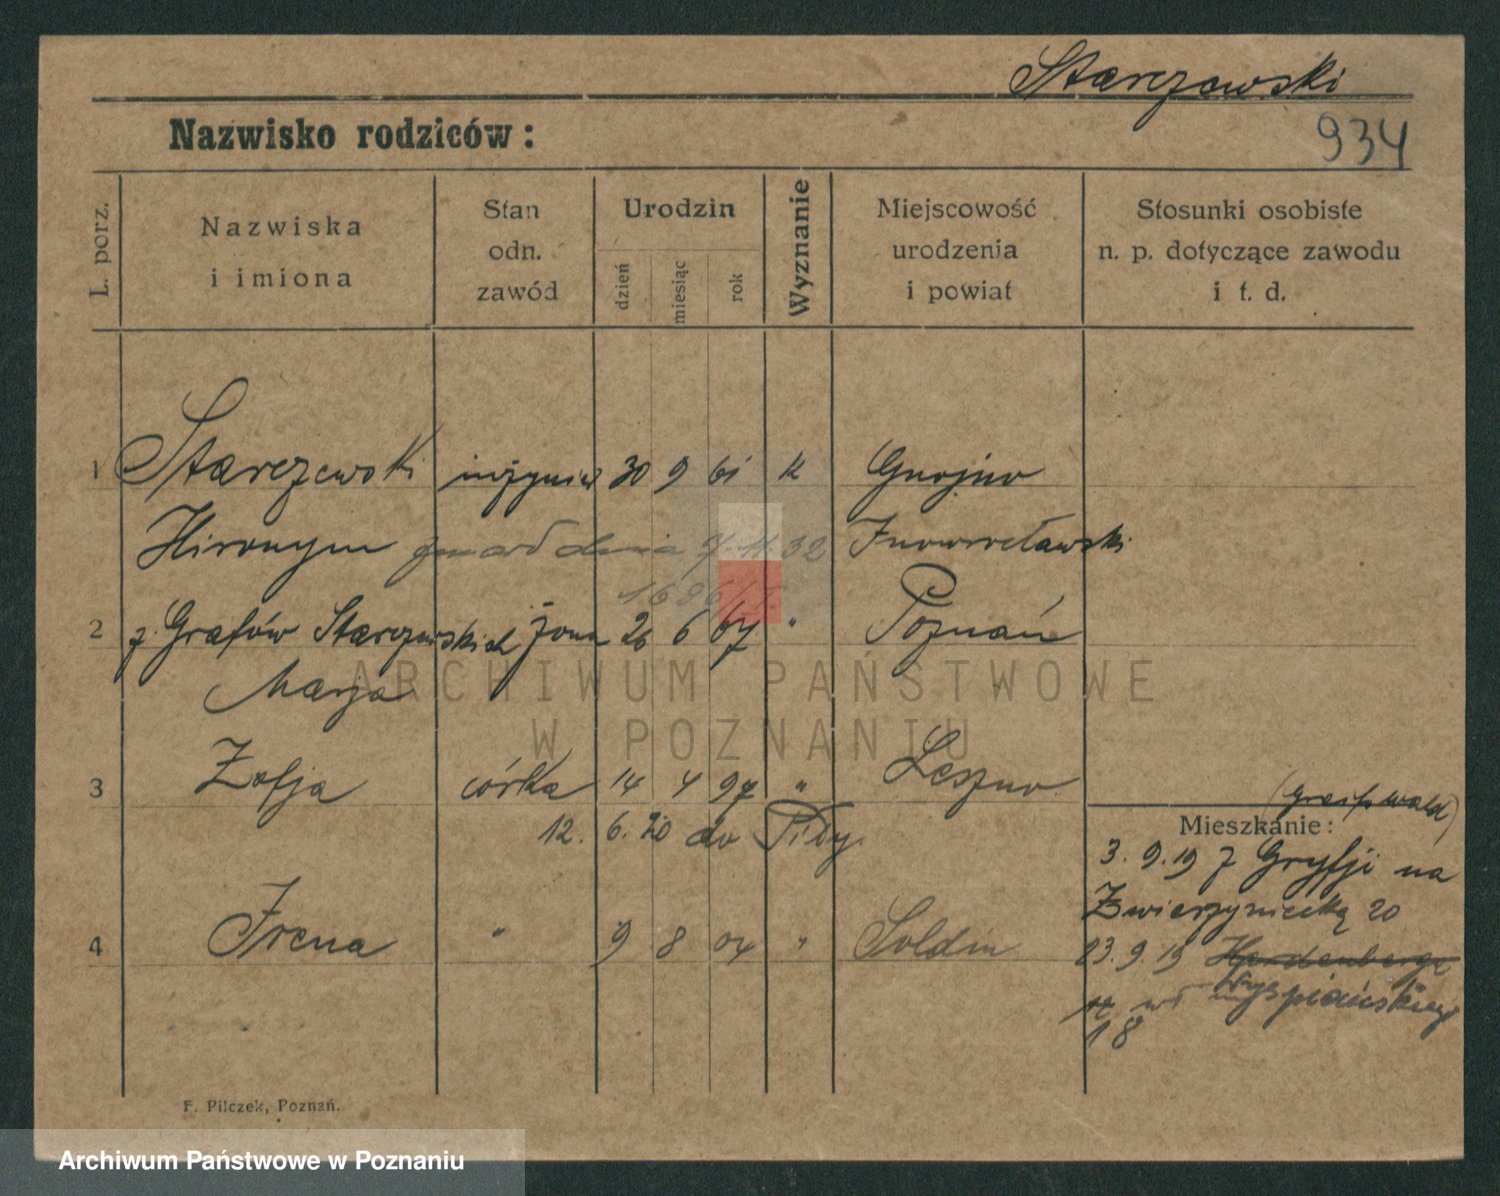 Starczewski
Nazwisko rodziców:
934
L. porz.
Nazwiska
i imiona
Stan
odn.
zawód
Urodzin
dzień
miesiąc
rok
Wyznanie
Miejscowość
urodzenia
i powiat
Stosunki osobiste
n. p. dotyczące zawodu
i t. d.
1 Starczewski inżynier 30 9 61 k Gnojno
Hironym zmarł dnia 7.11.32 Inowrocławski
2 z. Grafów Starczewskich żona 26 6 67 " Poznań
Marja
ARCHIWUM PAŃSTWOWE
W POZNANIU
3 Zofja córka 14 4 97 " Leszno
12. 6. 20 do Piły
(Greifswald)
Mieszkanie:
3. 9. 19 z Gryfji na
Zwierzyniecką 20
4 Irena " 9 8 04 " Soldin
23. 9. 19 Hardenberga
Wyspiańskiego
18
F. Pilczek, Poznań.
Archiwum Państwowe w Poznaniu